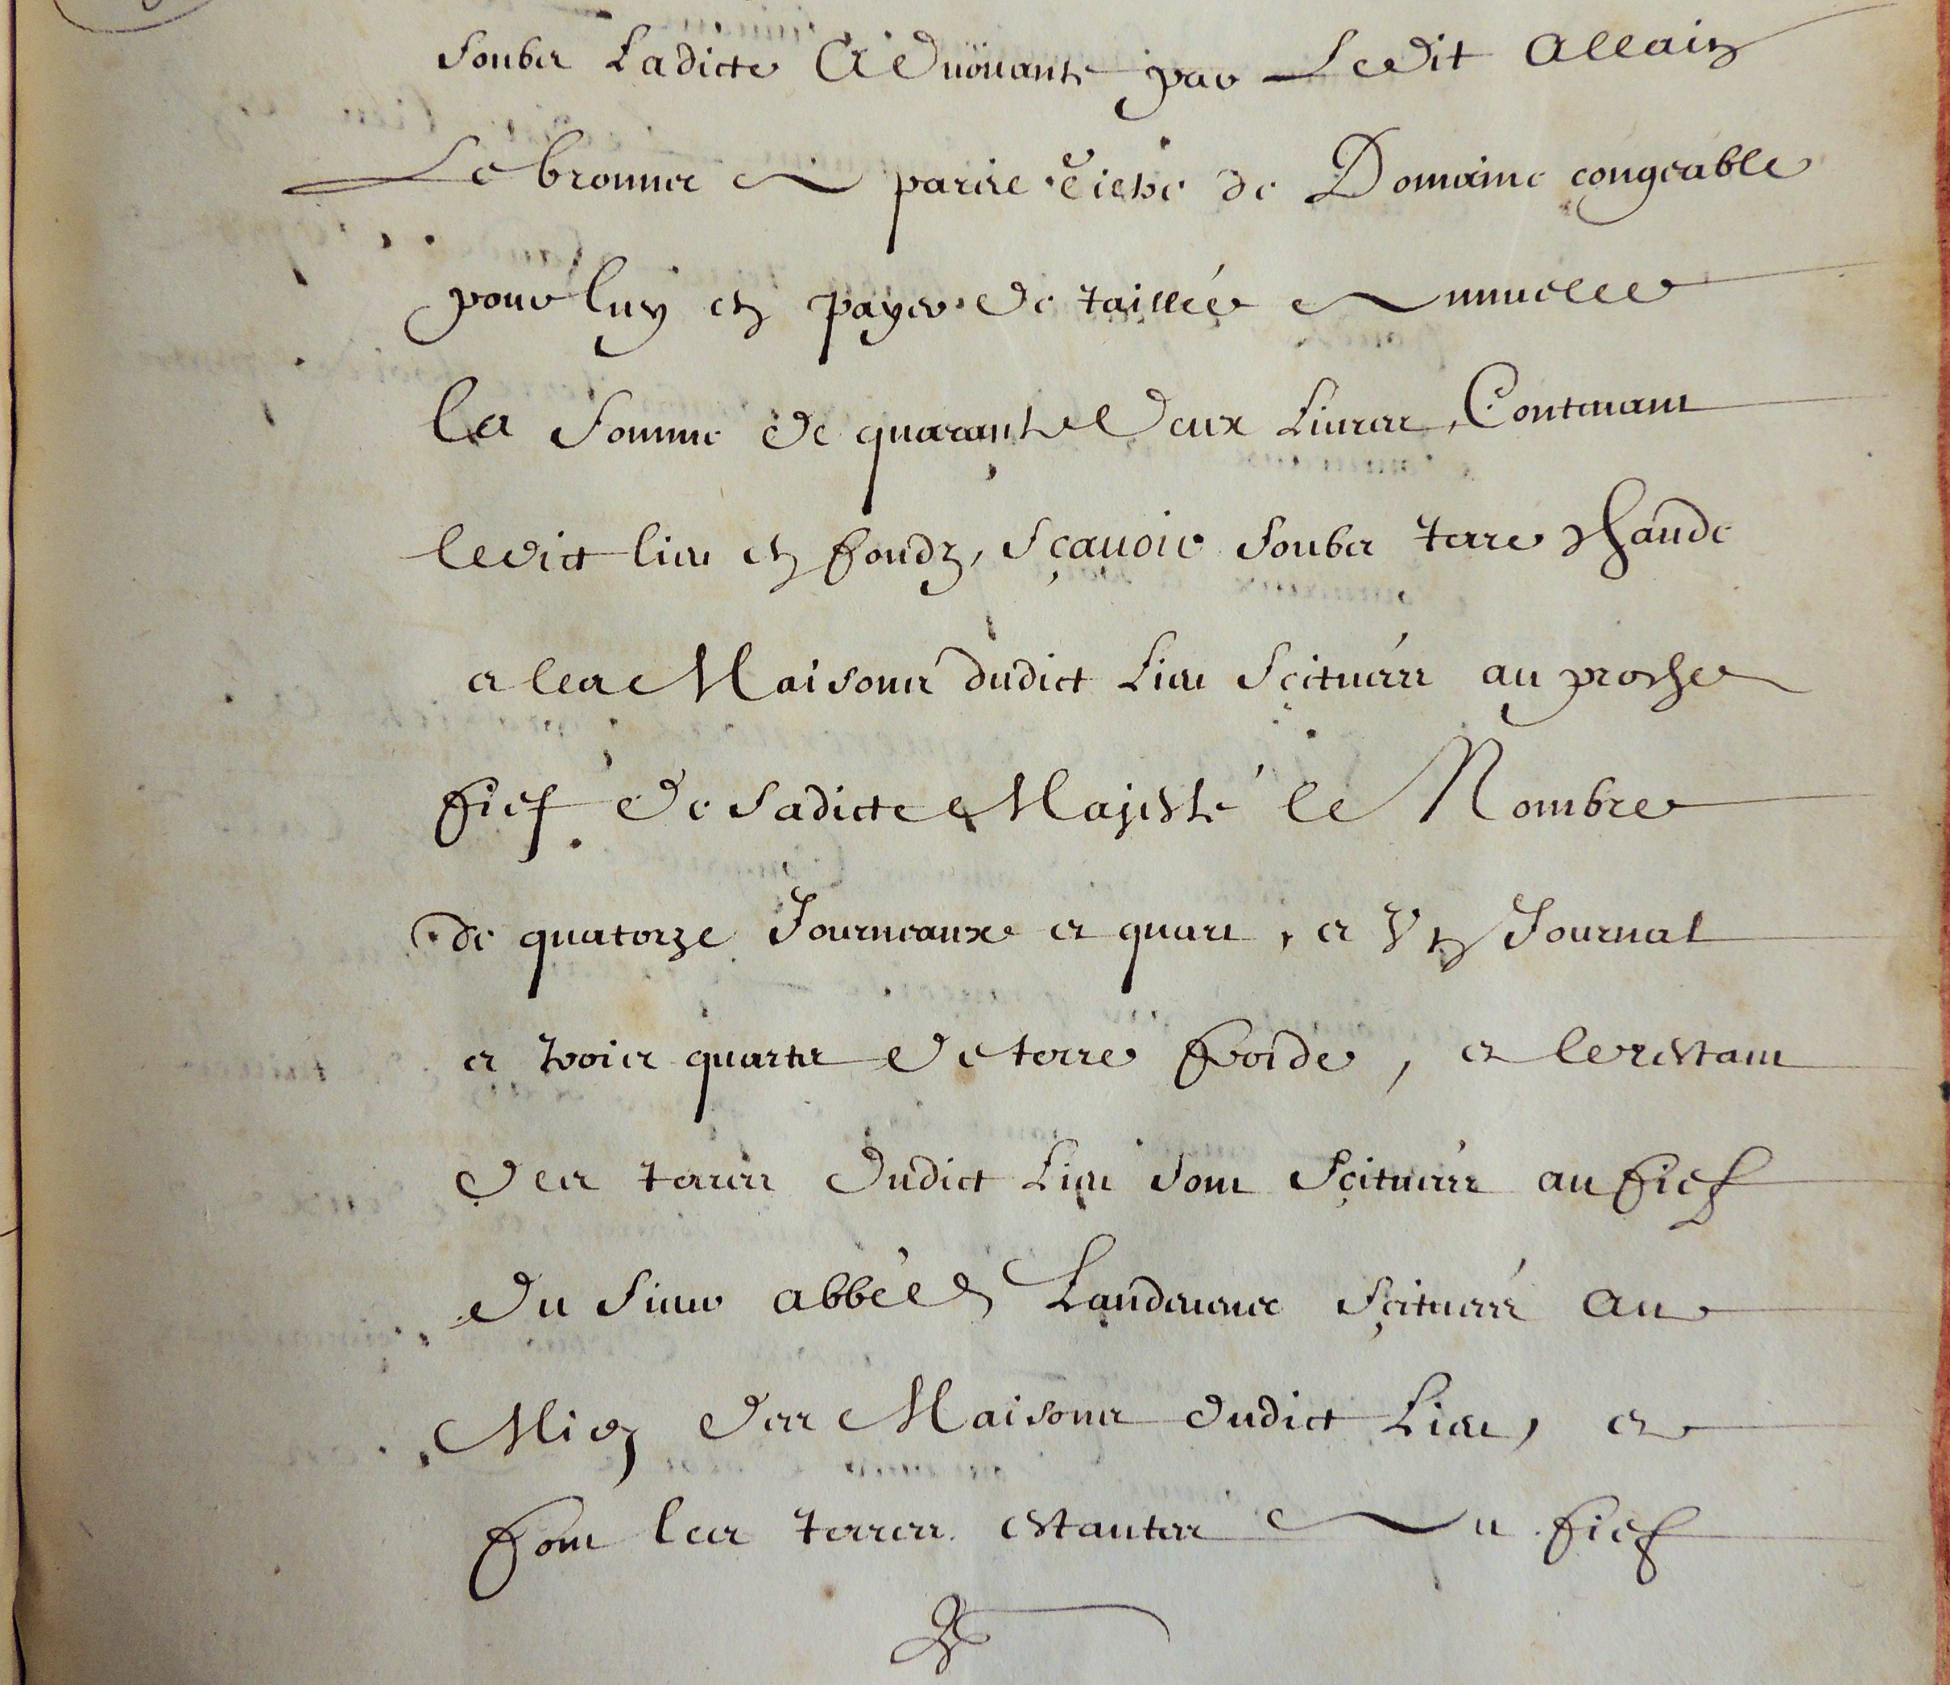 soubz Ladicte Aduoüante par Ledit Allain
Le bronnec A pareil tiltre de Domaine congeable
pour luy en payer de taillée Annuelle
la somme de quarante Deux Liures, Contenant
ledict lieu en fondz, sçauoir soubz terre chaude
et les Maisons dudict Lieu scituées au proche
fief de sadicte Majesté le Nombre
de quatorze Journeaux et quart, et Vn Journal
et trois quartz de terre froide, et le restant
des terres dudict Lieu sont scituées au fief
du sieur abbé de Landeuenec scitués au
Midy des Maisons dudict Lieu, et
sont les terres estantes Au fief